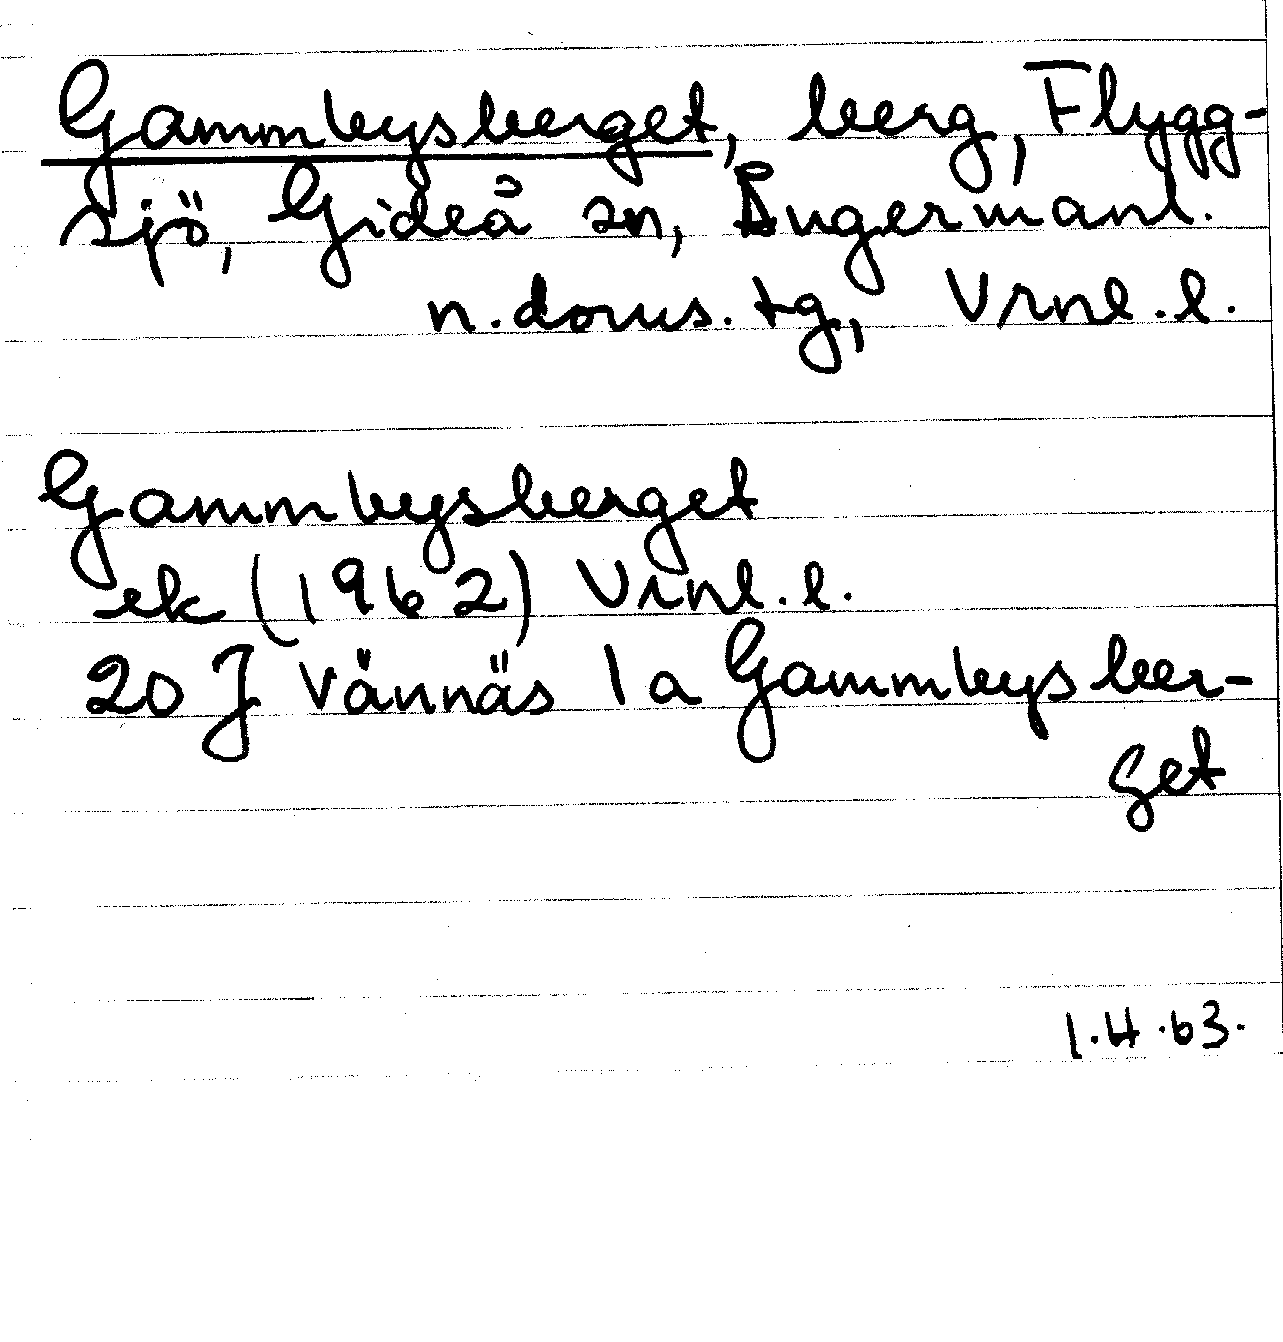 Gammbysberget, berg, Flygg-
sjö, Gideå sn, Ångermanl.
n. doms. tg, Vrnl. l.
Gammbysberget
ek (1962) Vrnl. l.
20 J Vännäs 1 a Gammbysber-
get
1.4.63.